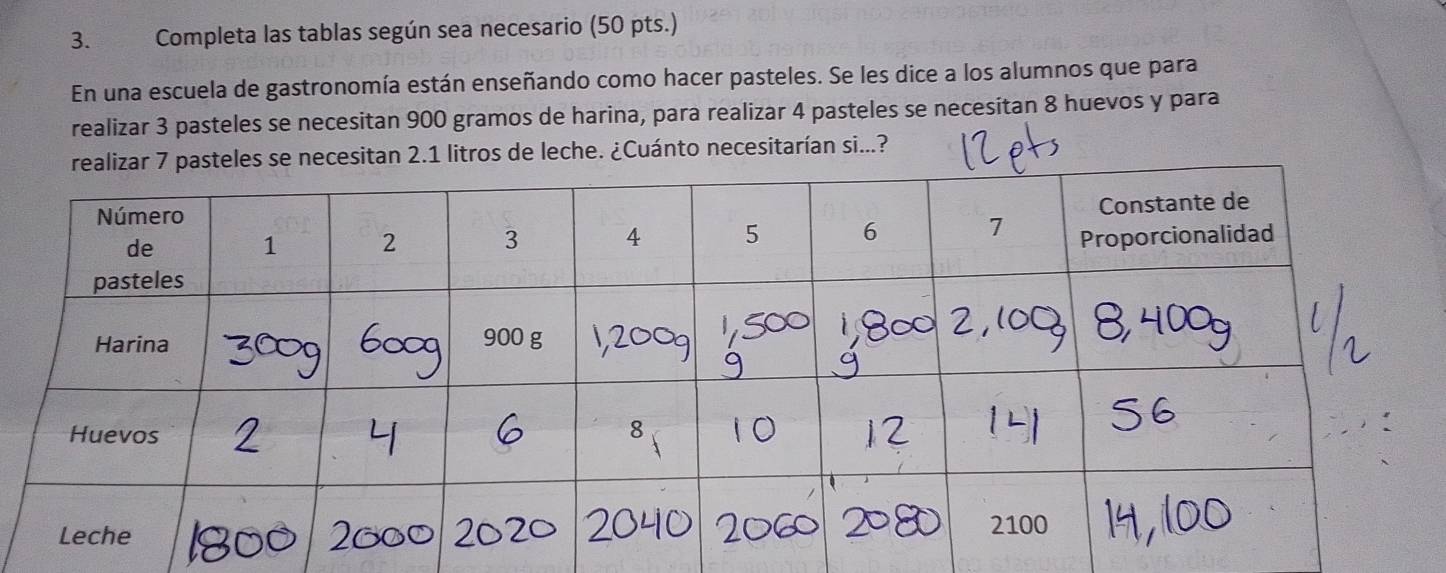 3. Completa las tablas según sea necesario (50 pts.)
En una escuela de gastronomía están enseñando como hacer pasteles. Se les dice a los alumnos que para
realizar 3 pasteles se necesitan 900 gramos de harina, para realizar 4 pasteles se necesitan 8 huevos y para
realizar 7 pasteles se necesitan 2.1 litros de leche. ¿Cuánto necesitarían si...?
12 pts
Número de pasteles 1 2 3 4 5 6 7 Constante de Proporcionalidad
Harina 300g 600g 900 g 1,200g 1,500 g 1,800 g 2,100g 8,400g 1/2
Huevos 2 4 6 8 10 12 14 56
Leche 1800 2000 2020 2040 2060 2080 2100 14,100